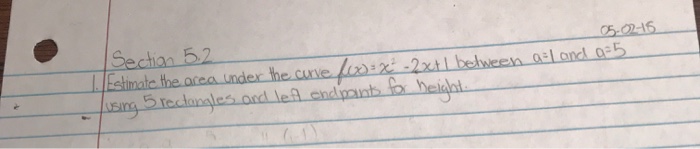 05-02-15
Section 5.2
1. Estimate the area under the curve f(x)=x²-2x+1 between a=1 and a=5
using 5 rectangles and left endpoints for height.